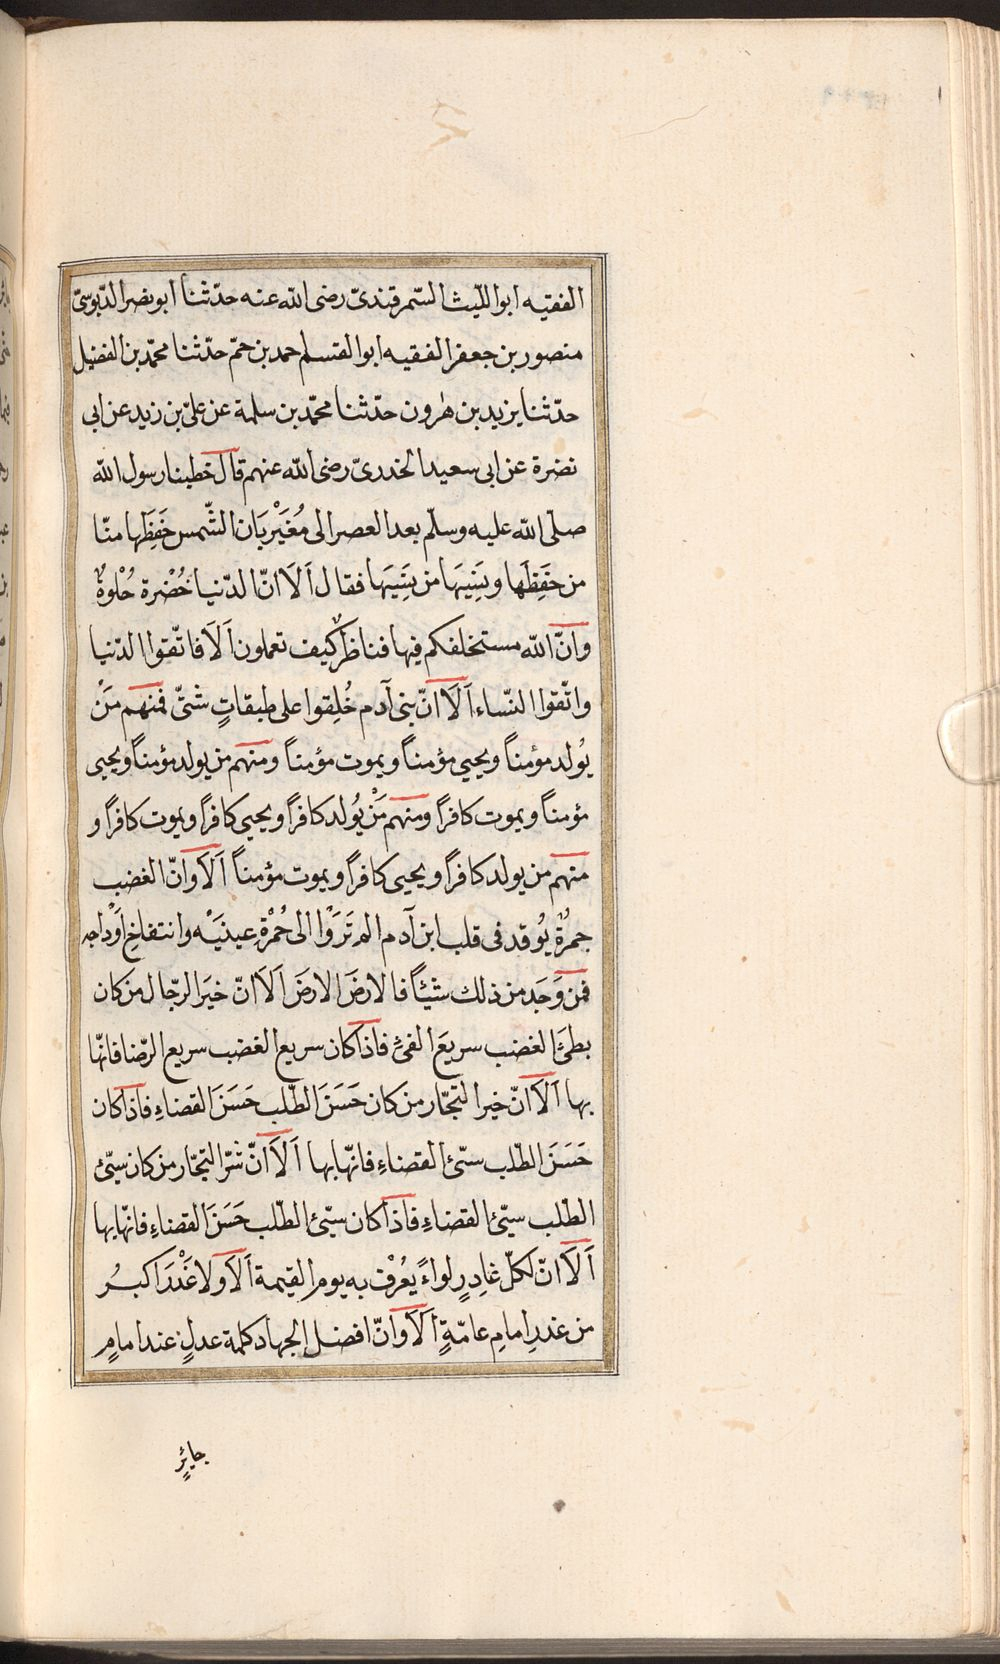 الفقيه ابو اللّيث السّمرقندىّ رضى اللّه عنه حدّثنا ابو نصر الدّبوسىّ
منصور بن جعفر الفقيه ابو القسم احمد بن حمّ حدّثنا محمّد بن الفضيل
حدّثنا يزيد بن هٰرون حدّثنا محمّد بن سلمة عن علىّ بن زيد عن ابى
نضرة عن ابى سعيد الخدرىّ رضى اللّه عنهم قال خطبنا رسول اللّه
صلّى اللّه عليه وسلّم بعد العصر الى مُغَيْرِبَان الشّمس حَفِظَها منّا
من حَفِظَها ونَسِيَهَا من نَسِيَهَا فقال اَلَا انّ الدّنيا خُضْرة حُلْوةٌ
وانّ اللّه مستخلفكم فيها فناظرٌ كيف تعملون اَلَا فاتّقوا الدّنيا
واتّقوا النّساء اَلَا انّ بنى آدم خُلِقوا على طبقاتٍ شتّى فمنهم مَنْ
يُولد مؤمناً ويحيى مؤمناً ويموت مؤمناً ومنهم من يولد مؤمناً ويحيى
مؤمناً ويموت كافراً ومنهم مَنْ يُولد كافراً ويحيى كافراً ويموت كافراً و
منهم من يولد كافراً ويحيى كافراً ويموت مؤمناً اَلَا وانّ الغضب
جمرةٌ يُوقد فى قلب ابن آدم الم تَرَوْا الى حُمْرةِ عينَيْه وانتفاخِ اَوْداجه
فمن وَجَد من ذلك شَيْئاً فالارضَ الارضَ اَلَا انّ خيَر الرّجال من كان
بطئَ الغضب سريعَ الفئِ فاذا كان سريع الغضب سريع الرّضا فانّها
بها اَلَا انّ خير التجّار من كان حَسَنَ الطّلب حَسَنَ القضاءِ فاذا كان
حَسَنَ الطّلب سيّئ القضاءِ فانّها بها اَلَا انّ شرّ التجّار من كان سيّئ
الطّلب سيّئ القضاءِ فاذا كان سيّئ الطّلب حَسَنَ القضاءِ فانّها بها
اَلَا انّ لكلّ غادِرٍ لواءً يُعْرَفُ به يوم القيمة اَلَا ولا غَدْرَ اكبرُ
من غدرِ امامِ عامّةٍ اَلَا وانّ افضل الجهاد كلمة عدلٍ عند امامٍ
جائرٍ